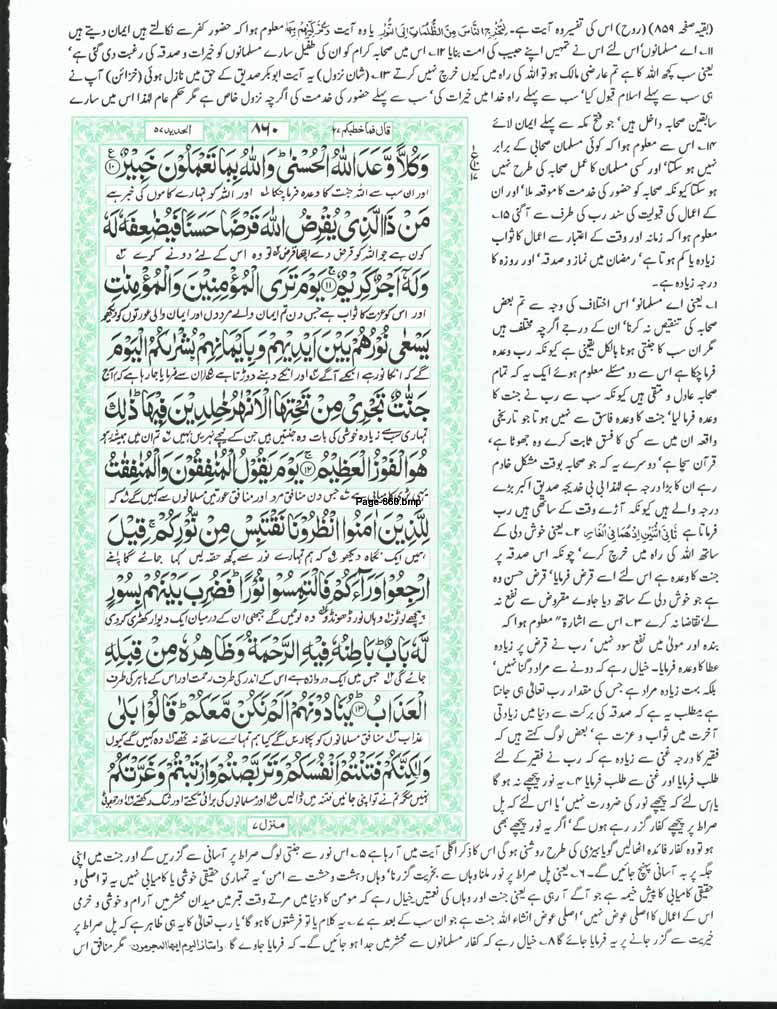 (بقیہ صفحہ ۸۵۹) (روح) اس کی تفسیر وہ آیت ہے۔ لِتُخْرِجَ النَّاسَ مِنَ الظُّلُمَاتِ اِلَی النُّوْرِ یا وہ آیت معلوم ہوا کہ حضور کفر سے نکالتے ہیں ایمان دیتے ہیں
۱۱۔ اے مسلمانوں! اس لئے اس نے تمہیں اپنے حبیب کی امت بنایا ۱۲۔ اس میں صحابہ کرام کو ان کی طفیل سارے مسلمانوں کو خیرات و صدقہ کی رغبت دی گئی ہے'
یعنی سب کچھ اللہ کا ہے تم عارضی مالک ہو تو اللہ کی راہ میں کیوں خرچ نہیں کرتے ۱۳۔ (شان نزول) یہ آیت ابوبکر صدیق کے حق میں نازل ہوئی (خزائن) آپ نے
ہی سب سے پہلے اسلام قبول کیا' سب سے پہلے راہ خدا میں خیرات کی' سب سے پہلے حضور کی خدمت کی اگرچہ نزول خاص ہے مگر حکم عام لہٰذا اس میں سارے
سابقین صحابہ داخل ہیں' جو فتح مکہ سے پہلے ایمان لائے
۱۴۔ اس سے معلوم ہوا کہ کوئی مسلمان صحابی کے برابر
نہیں ہو سکتا' اور کسی مسلمان کا عمل صحابہ کی طرح نہیں
ہو سکتا کیونکہ صحابہ کو حضور کی خدمت کا موقعہ ملا' اور ان
کے اعمال کی قبولیت کی سند رب کی طرف سے آ گئی ۱۵۔
معلوم ہوا کہ زمانہ اور وقت کے اعتبار سے اعمال کا ثواب
زیادہ یا کم ہوتا ہے' رمضان میں نماز و صدقہ' اور روزہ کا
درجہ زیادہ ہے۔
۱۔ یعنی اے مسلمانو' اس اختلاف کی وجہ سے تم بعض
صحابہ کی تنقیص نہ کرنا' ان کے درجے اگرچہ مختلف ہیں
مگر ان سب کا جنتی ہونا بالکل یقینی ہے کیونکہ رب وعدہ
فرما چکا ہے اس سے دو مسئلے معلوم ہوئے ایک یہ کہ تمام
صحابہ عادل و متقی ہیں کیونکہ سب سے رب نے جنت کا
وعدہ فرما لیا' جنت کا وعدہ فاسق سے نہیں ہوتا جو تاریخی
واقعہ ان میں سے کسی کا فسق ثابت کرے وہ جھوٹا ہے'
قرآن سچا ہے' دوسرے یہ کہ جو صحابہ بوقت مشکل خادم
رہے ان کا بڑا درجہ ہے لہٰذا بی بی خدیجہ صدیق اکبر بڑے
درجہ والے ہیں کیونکہ آڑے وقت کے ساتھی ہیں رب
فرماتا ہے ثَانِیَ اثْنَیْنِ اِذْ هُمَا فِی الْغَارِ ۲۔ یعنی خوش دلی کے
ساتھ اللہ کی راہ میں خرچ کرے' چونکہ اس صدقہ پر
جنت کا وعدہ ہے اس لئے اسے قرض فرمایا' قرض حسن وہ
ہے جو خوش دلی کے ساتھ دیا جاوے مقروض سے نفع نہ
لے' تقاضا نہ کرے ۳۔ اس سے اشارۃً معلوم ہوا کہ
بندہ اور مولیٰ میں نفع سود نہیں' رب نے قرض پر زیادہ
عطا کا وعدہ فرمایا۔ خیال رہے کہ دونے سے مراد دگنا نہیں'
بلکہ بہت زیادہ مراد ہے جس کی مقدار رب تعالیٰ ہی جانتا
ہے مطلب یہ ہے کہ صدقہ کی برکت سے دنیا میں زیادتی
آخرت میں ثواب و عزت ہے' بعض لوگ کہتے ہیں کہ
فقیر کا درجہ غنی سے زیادہ ہے کہ رب نے فقیر کے لئے
طلب فرمایا اور غنی سے طلب فرمایا ۴۔ یہ نور پیچھے نہ ہو گا
یا اس لئے کہ پیچھے نور کی ضرورت نہیں' یا اس لئے کہ پل
صراط پر پیچھے کفار گزر رہے ہوں گے' اگر یہ نور پیچھے بھی
قال فما خطبکم ۲۷
۸۶۰
الحدید ۵۷
وَكُلًّا وَّعَدَ اللّٰهُ الْحُسْنٰى ؕ وَاللّٰهُ بِمَا تَعْمَلُوْنَ خَبِيْرٌ ۱۰
اور ان سب سے اللہ جنت کا وعدہ فرما چکا اور اللہ کو تمہارے کاموں کی خبر ہے
مَنْ ذَا الَّذِيْ يُقْرِضُ اللّٰهَ قَرْضًا حَسَنًا فَيُضٰعِفَهٗ لَهٗ
کون ہے جو اللہ کو قرض دے اچھا قرض تو وہ اس کے لئے دونے کرے
وَلَهٗۤ اَجْرٌ كَرِيْمٌ ۱۱ يَوْمَ تَرَى الْمُؤْمِنِيْنَ وَالْمُؤْمِنٰتِ
اور اس کو عزت کا ثواب ہے جس دن تم ایمان والے مردوں اور ایمان والی عورتوں کو دیکھو
يَسْعٰى نُوْرُهُمْ بَيْنَ اَيْدِيْهِمْ وَبِاَيْمَانِهِمْ بُشْرٰىكُمُ الْيَوْمَ
گے کہ انکا نور ہے انکے آگے اور انکے دہنے دوڑتا ہے ان سے فرمایا جا رہا ہے کہ آج
جَنّٰتٌ تَجْرِيْ مِنْ تَحْتِهَا الْاَنْهٰرُ خٰلِدِيْنَ فِيْهَا ؕ ذٰلِكَ
تمہاری سب سے زیادہ خوشی کی بات وہ جنتیں ہیں جن کے نیچے نہریں بہیں تم ان میں ہمیشہ رہو
هُوَ الْفَوْزُ الْعَظِيْمُ ۱۲ يَوْمَ يَقُوْلُ الْمُنٰفِقُوْنَ وَالْمُنٰفِقٰتُ
یہی بڑی کامیابی ہے جس دن منافق مرد اور منافق عورتیں مسلمانوں سے کہیں گے کہ
Page-860.bmp
لِلَّذِيْنَ اٰمَنُوا انْظُرُوْنَا نَقْتَبِسْ مِنْ نُّوْرِكُمْ ۚ قِيْلَ
ہمیں ایک نگاہ دیکھو کہ ہم تمہارے نور سے کچھ حصہ لیں کہا جائے گا اپنے
ارْجِعُوْا وَرَآءَكُمْ فَالْتَمِسُوْا نُوْرًا ؕ فَضُرِبَ بَيْنَهُمْ بِسُوْرٍ
پیچھے لوٹو وہاں نور ڈھونڈو وہ لوٹیں گے جبھی ان کے درمیان ایک دیوار کھڑی کر دی
لَّهٗ بَابٌ ؕ بَاطِنُهٗ فِيْهِ الرَّحْمَةُ وَظَاهِرُهٗ مِنْ قِبَلِهِ
جائے گی جس میں ایک دروازہ ہے اس کے اندر کی طرف رحمت اور اس کے باہر کی طرف
الْعَذَابُ ۱۳ يُنَادُوْنَهُمْ اَلَمْ نَكُنْ مَّعَكُمْ ؕ قَالُوْا بَلٰى
عذاب منافق مسلمانوں کو پکاریں گے کیا ہم تمہارے ساتھ نہ تھے وہ کہیں گے کیوں
وَلٰكِنَّكُمْ فَتَنْتُمْ اَنْفُسَكُمْ وَتَرَبَّصْتُمْ وَارْتَبْتُمْ وَغَرَّتْكُمُ
نہیں مگر تم نے تو اپنی جانیں فتنہ میں ڈالیں اور مسلمانوں کی برائی تکتے اور شک رکھتے اور جھوٹی
منزل ۷
ہو تو وہ کفار فائدہ اٹھالیں گویا بیزی کی طرح روشنی ہو گی اس کا ذکر اگلی آیت میں آ رہا ہے ۵۔ اس نور سے جنتی لوگ صراط پر آسانی سے گزریں گے اور جنت میں اپنی
جگہ پر بہ آسانی پہنچ جائیں گے۔ ۶۔ یعنی پل صراط پر نور ملنا وہاں سے بخیریت گزرنا' وہاں دہشت و وحشت سے امن' یہ تمہاری حقیقی خوشی یا کامیابی نہیں یہ تو اصلی و
حقیقی کامیابی کا پیش خیمہ ہے جو آگے آ رہی ہے یعنی جنت اور وہاں کی نعمتیں خیال رہے کہ مومن کا دنیا میں مرتے وقت قبر میں میدان محشر میں آرام و خوشی و خرمی
اس کے اعمال کا اصلی عوض نہیں' اصلی عوض انشاء اللہ جنت ہے جو ان سب کے بعد ہے ۷۔ یہ کلام یا تو فرشتوں کا ہو گا' یا رب تعالیٰ کا یہ ہی ظاہر ہے کہ پل صراط پر
خیریت سے گزر جانے پر یہ فرمایا جائے گا ۸۔ خیال رہے کہ کفار مسلمانوں سے محشر میں جدا ہو جائیں گے۔ کہ فرمایا جاوے گا وامتازوا الیوم ایها المجرمون مگر منافق اس